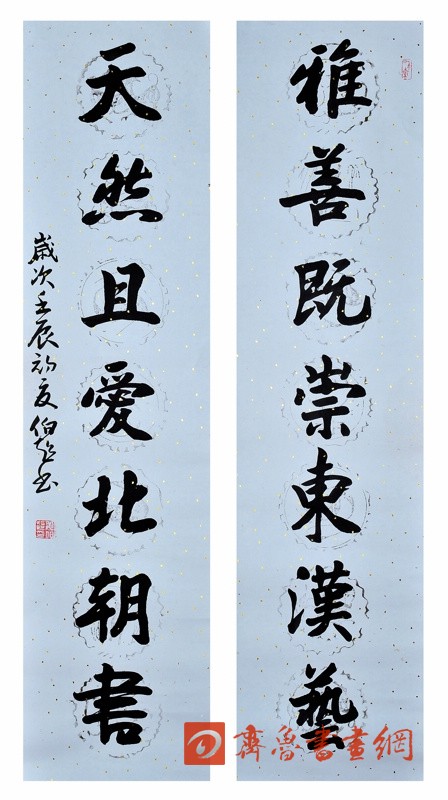 雅善既崇東漢藝
天然且愛北朝書
歲次壬辰初夏伯超书
齊魯書畫網